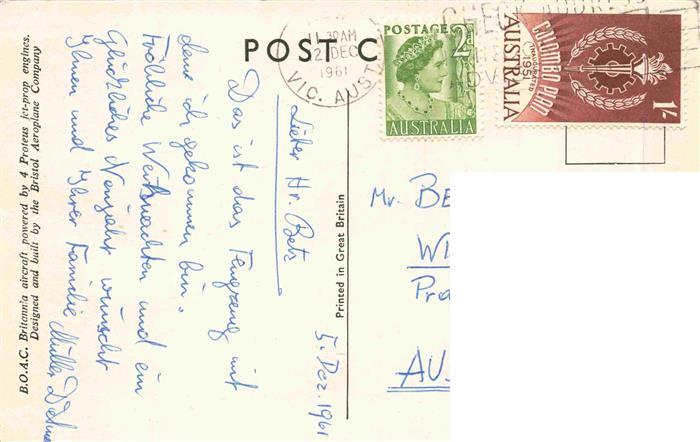 POST C
11 30AM
2 DEC
1961
VIC. AUST
POSTAGE
2
AUSTRALIA
COLOMBO PLAN
INAUGURATED
1951
AUSTRALIA
1/-
5. Dez. 1961
Lieber Hr. Betz
Das ist das Flugzeug mit
dem ich gekommen bin.
Fröhliche Weihnachten und ein
Glückliches Neujahr wünscht
Ihnen und Ihrer Familie Müller
B.O.A.C. Britannia aircraft powered by 4 Proteus jet-prop engines.
Designed and built by the Bristol Aeroplane Company
Printed in Great Britain
Mr. BE
WI
Pra
AU